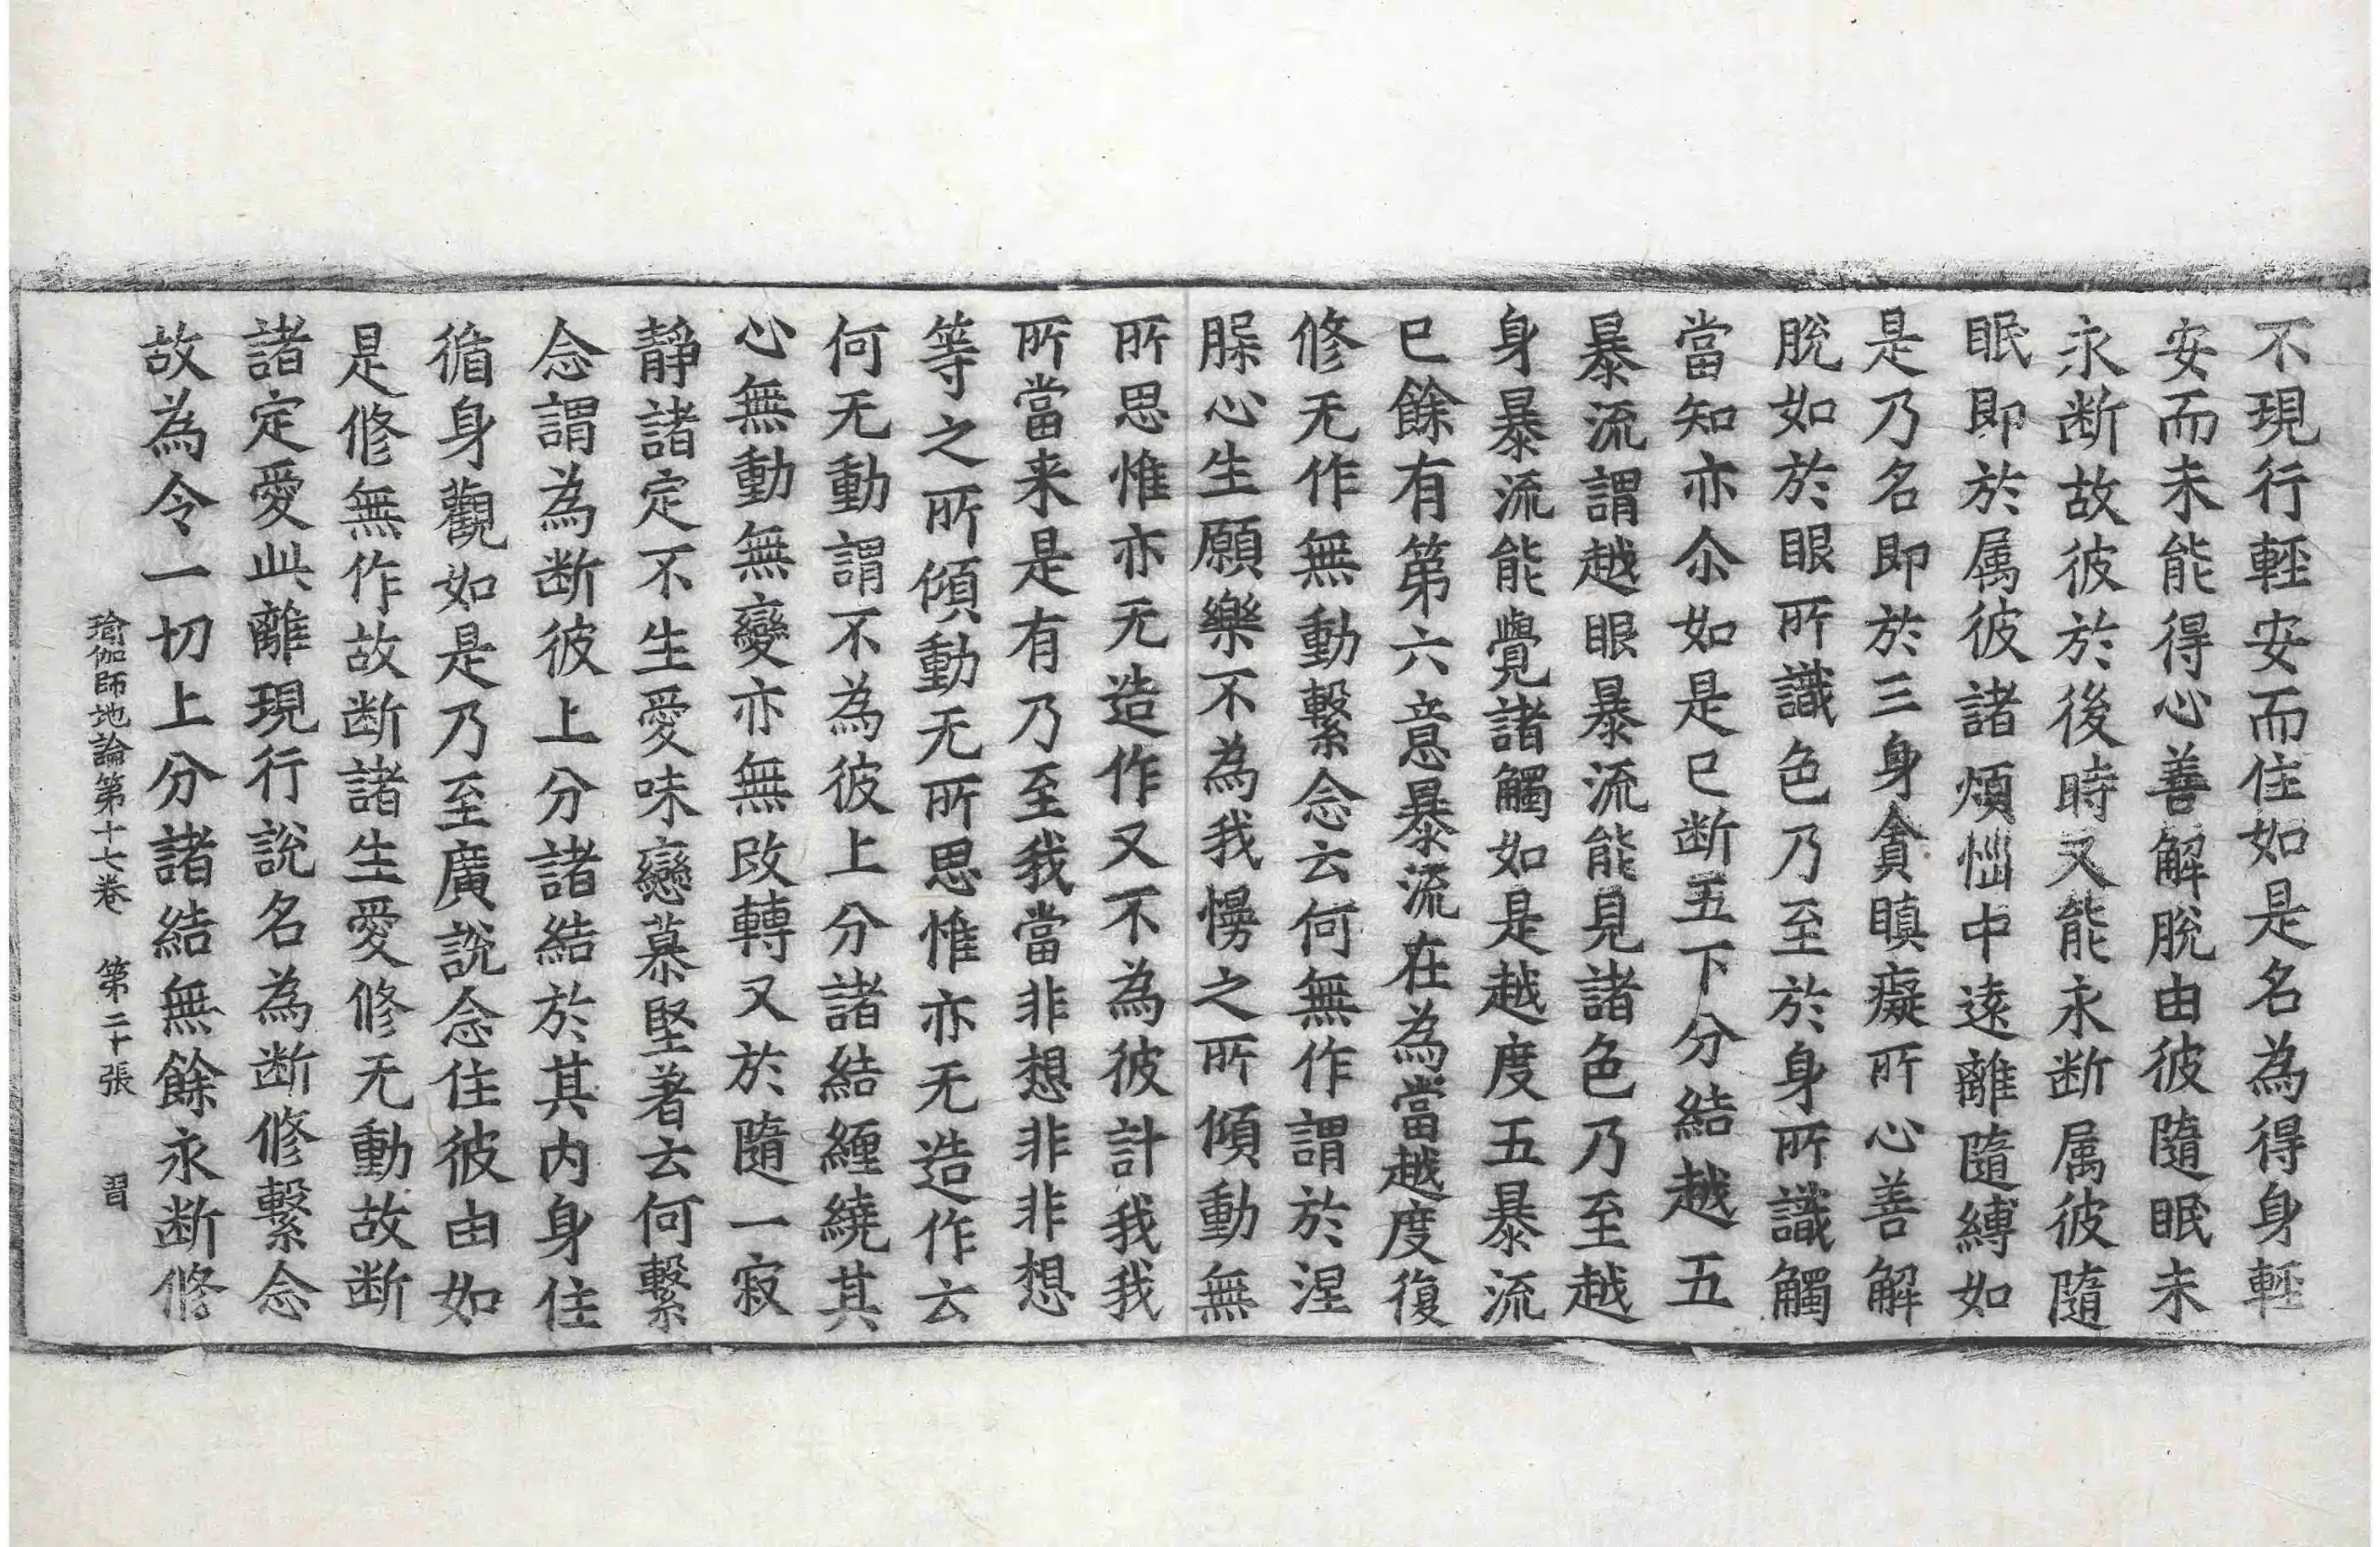 不現行輕安而住如是名為得身輕
安而未能得心善解脫由彼隨眠未
永断故彼於後時又能永断属彼隨
眠即於属彼諸煩惱中遠離隨縛如
是乃名即於三身貪瞋癡所心善解
脫如於眼所識色乃至於身所識觸
當知亦尒如是已断五下分結越五
暴流謂越眼暴流能見諸色乃至越
身暴流能覺諸觸如是越度五暴流
已餘有第六意暴流在為當越度復
修无作無動繫念云何無作謂於涅
脲心生願樂不為我慢之所傾動無
所思惟亦无造作又不為彼計我我
所當来是有乃至我當非想非非想
等之所傾動无所思惟亦无造作云
何无動謂不為彼上分諸結纏繞其
心無動無變亦無改轉又於隨一寂
靜諸定不生愛味戀慕堅著云何繫
念謂為断彼上分諸結於其内身住
循身觀如是乃至廣說念住彼由如
是修無作故断諸生愛修无動故断
諸定愛此離現行說名為断修繫念
故為令一切上分諸結無餘永断修
瑜伽師地論第十七卷　第二十張　習